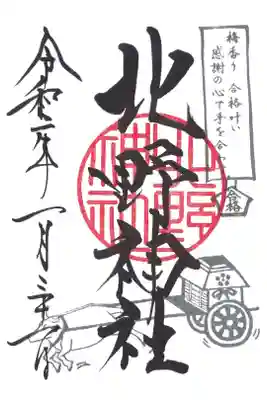 梅香り 合格叶い
感謝の心で手を合
合格
北野神社
北野
神社
令和 年一月 日